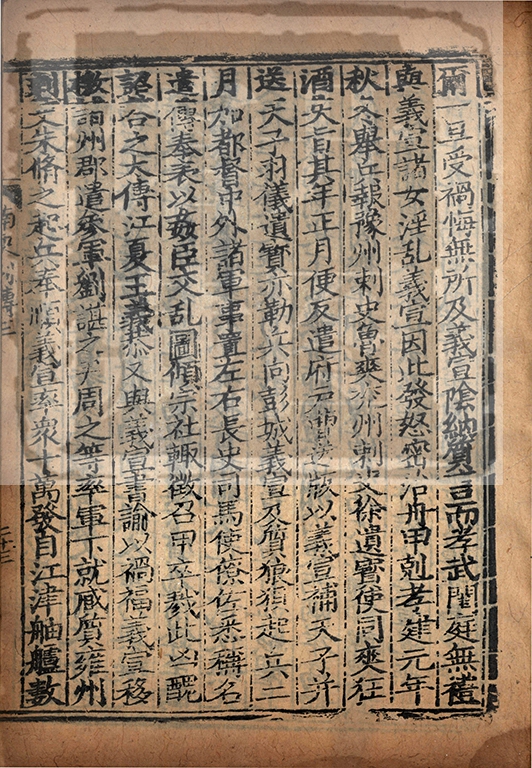 爾一旦受禍悔無所及義宣隂納質言而孝武閨庭無禮
與義宣諸女淫乱義宣因此發怒密治舟甲剋孝建元年
秋冬舉兵報豫州刺史魯爽兖州刺史徐遺寳使同爽狂
酒失旨其年正月便反遣府戸曹送版以義宣補天子并
送天子羽儀遺寳亦勒兵向彭城義宣及質狼狽起兵二
月加都督中外諸軍事置左右長史司馬使僚佐悉稱名
遣傳奉表以姦臣交乱圖傾宗社輙徵召甲卒戮此凶醜
詔荅之太傅江夏王義恭又與義宣書諭以禍福義宣移
檄諸州郡遣參軍劉諶之尹周之等率軍下就臧質雍州
刺史朱脩之起兵奉順義宣率衆十萬發自江津舳艫數